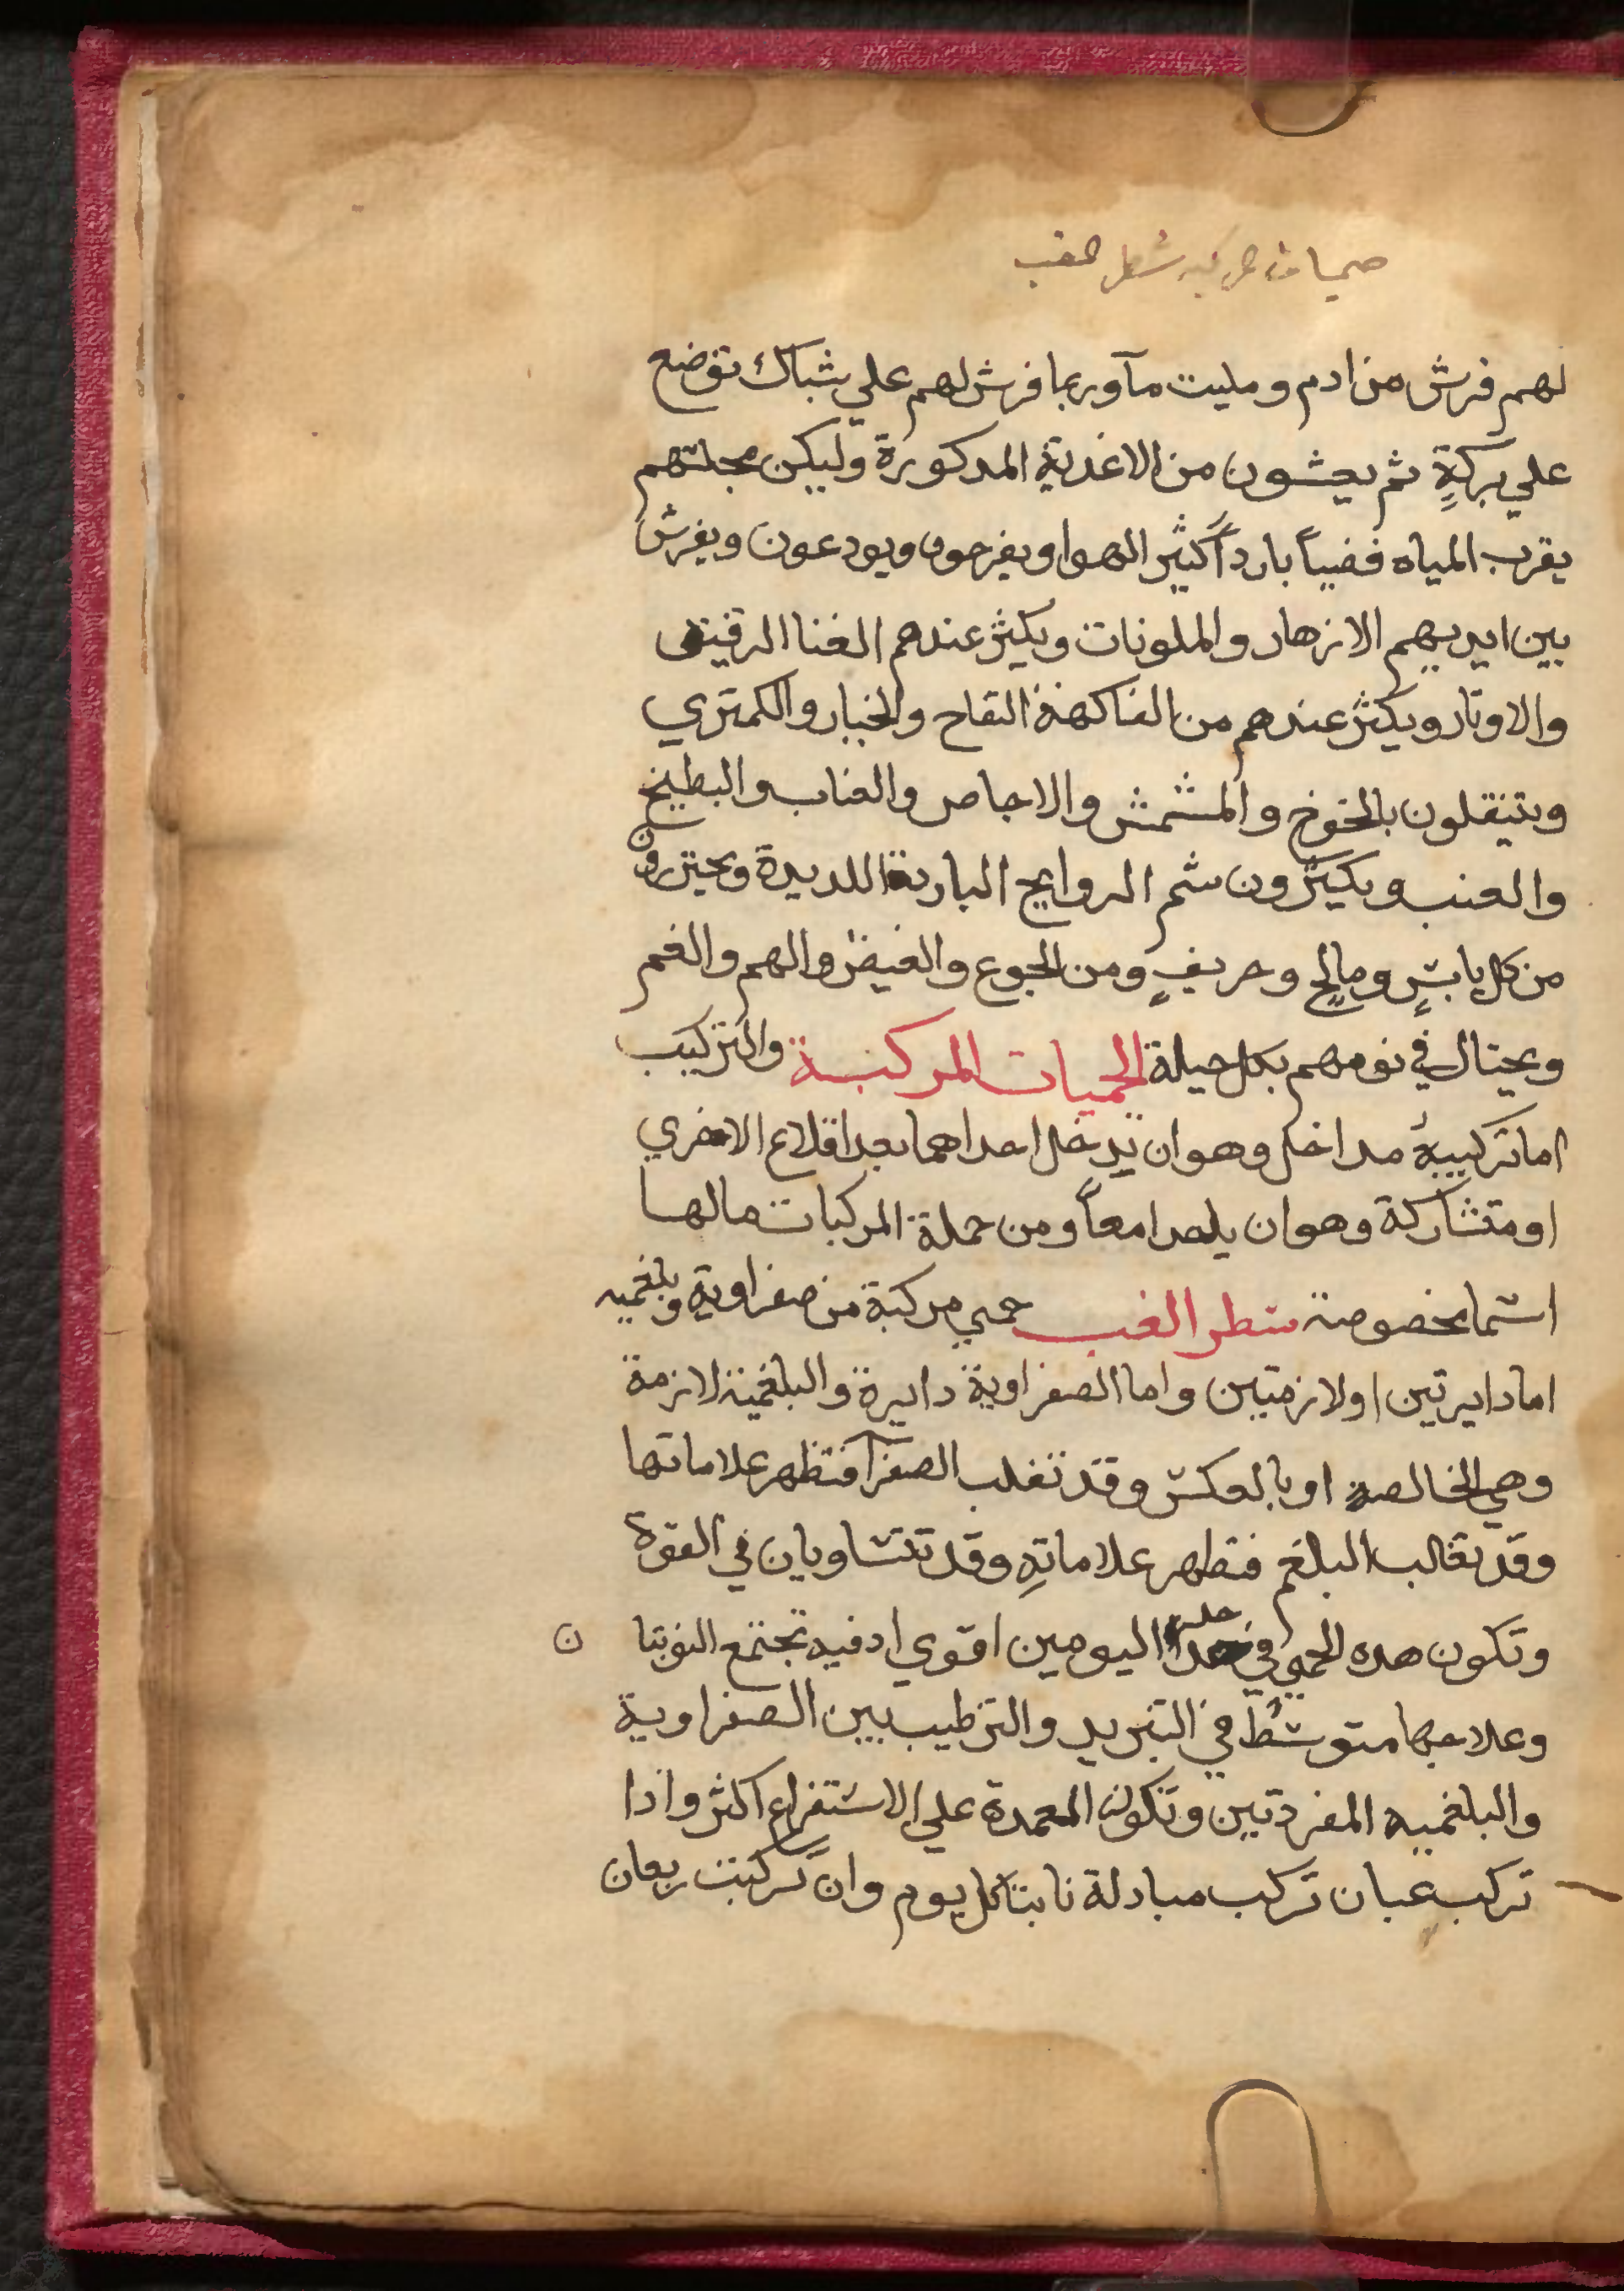 لهم فرش من ادم ومليت مآ وربما فرش لهم علي شباك توضع
علي بركةٍ ثم يحشون من الاغدية المدكورة وليكن مجلسهم
بقرب المياه فضياً بارداً كثير الهوا ويفرحون ويودعون ويفرش
بين ايديهم الازهار والملونات ويكثر عندهم الغنا الرقيق
والاوتار ويكثر عندهم من الفاكهة التفاح والخيار والكمتري
ويتنقلون بالخوخ والمشمش والاجاص والعناب والبطيخ
والعنب ويكثرون شم الروايح الباردة اللديدة ويحترزون
من كل يابسٍ ومالحٍ وحريفٍ ومن الجوع والغيض والهم والغم
ويحتال في نومهم بكل حيلة الحميات المركبة والتركيب
اما تركيبة مداخل وهو ان تدخل احداهما بعد اقلاع الاخري
او متشاركة وهو ان معاً ومن جملة المركبات مالها
اسما مخصوصة شطر الغب حمي مركبة من صفراوية وبلغميه
اما دايرتين او لازمتين واما الصفراوية دايرة والبلغمية لازمة
وهي الخالصة او بالعكس وقد تغلب الصفرآ فتظهر علاماتها
وقد تغالب البلغم فتظهر علاماتهِ وقد تتساويان في القوة
وتكون هده الحمي في اليومين اقوي اد فيه تجتمع النوبتا ن
وعلاجها متوسط في التبريد والترطيب بين الصفراوية
والبلغميه المفردتين وتكون المعمدة علي الاستفراغ اكثر وادا
تركب غبان تركب مبادلة نابتا كل يوم وان تركبت ربعان